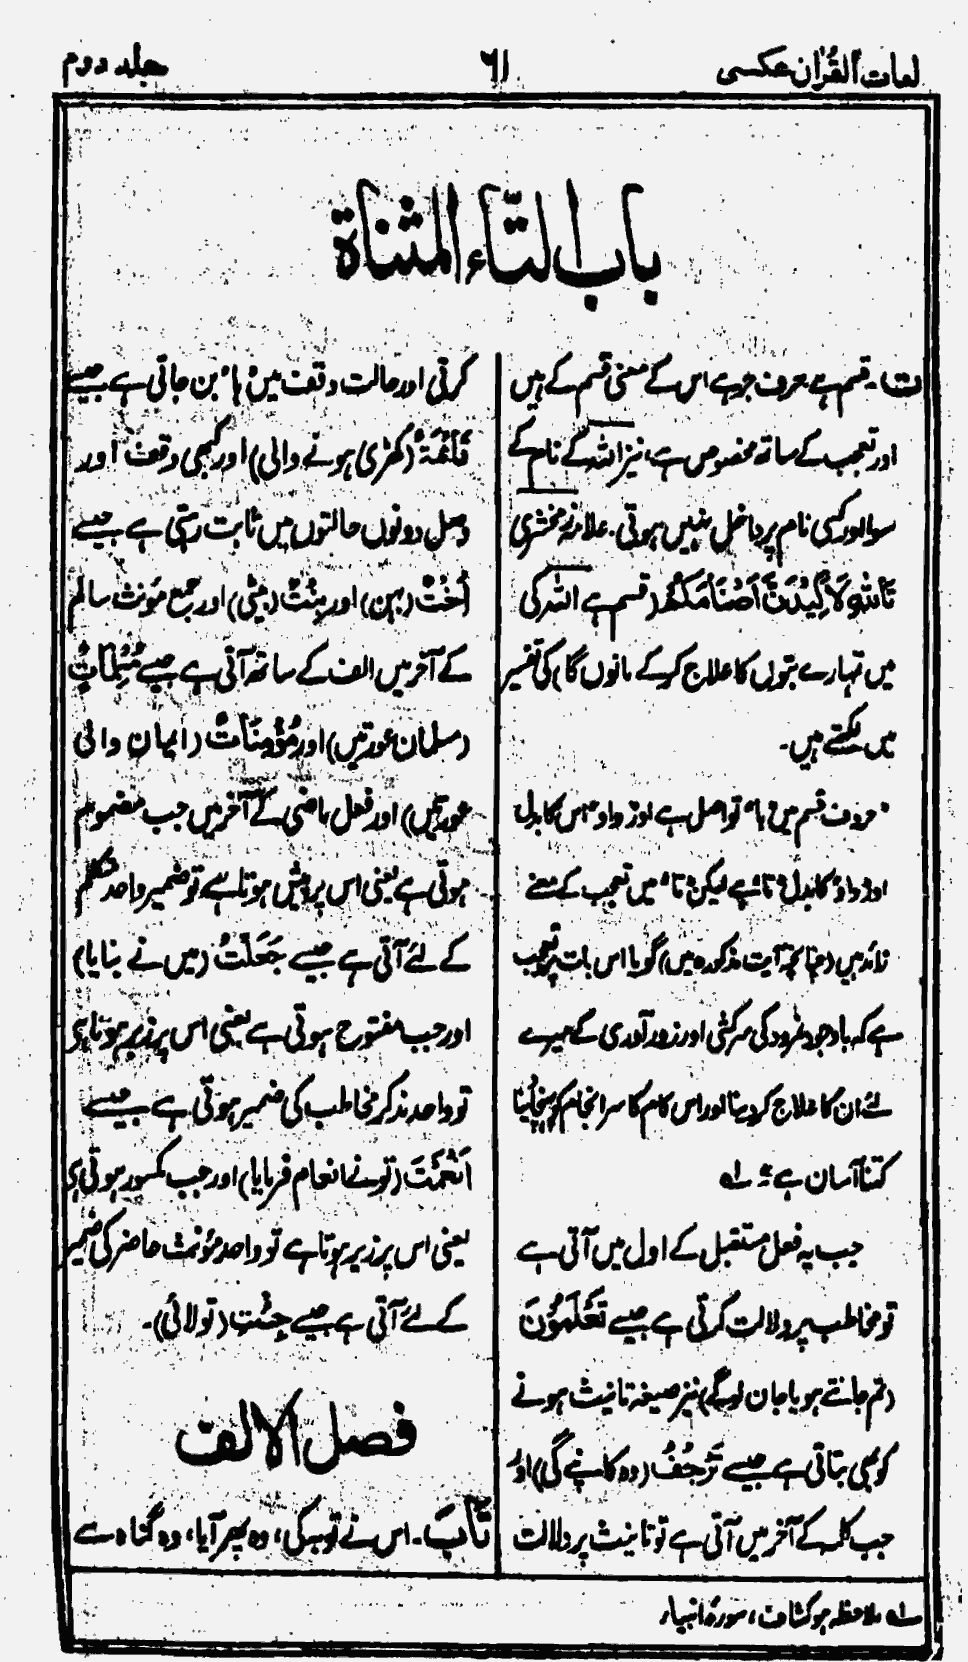 لغات القرآن عکسی
۶۱
جلد دوم
باب التّاء المثناة
ت۔ قسم ہے حرف جر ہے اس کے معنی قسم کے ہیں
اور تعجب کے ساتھ مخصوص ہے، نیز اللہ کے نام کے
سوا اور کسی نام پر داخل نہیں ہوتی۔ علامہ زمخشری
تَاللّٰهِ لَاَكِيْدَنَّ اَصْنَامَكُمْ (قسم ہے اللہ کی
میں تمہارے بتوں کا علاج کر کے مانوں گا) کی تفسیر
میں لکھتے ہیں۔
حروف قسم میں "با" تو اصل ہے اور "واو" اس کا بدل
اور "واو" کا بدل "تا" ہے لیکن "تا" میں تعجب کے معنے
زائد ہیں (چنانچہ آیت مذکورہ میں) گویا اس بات پر تعجب
ہے کہ باوجود نمرود کی سرکشی اور زور آوری کے میرے
لئے ان کا علاج کر دینا اور اس کام کا سرانجام کو پہنچا دینا
کتنا آسان ہے"؂۱
جب یہ فعل مستقبل کے اول میں آتی ہے
تو مخاطب پر دلالت کرتی ہے جیسے تَعْلَمُوْنَ
(تم جانتے ہو یا جان لو گے) نیز صیغہ تانیث ہونے
کو بھی بتاتی ہے جیسے تَرْجُفُ (وہ کانپے گی) اور
جب کلمہ کے آخر میں آتی ہے تو تانیث پر دلالت
کرتی اور حالت وقف میں "ہا" بن جاتی ہے جیسے
قَائِمَةٌ (کھڑی ہونے والی) اور کبھی وقف اور
وصل دونوں حالتوں میں ثابت رہتی ہے جیسے
اُخْتٌ (بہن) اور بِنْتٌ (بیٹی) اور جمع مؤنث سالم
کے آخر میں الف کے ساتھ آتی ہے جیسے مُسْلِمَاتٌ
(مسلمان عورتیں) اور مُؤْمِنَاتٌ (ایمان والی
عورتیں) اور فعل ماضی کے آخر میں جب مضموم
ہوتی ہے یعنی اس پر پیش ہوتا ہے تو ضمیر واحد متکلم
کے لئے آتی ہے جیسے جَعَلْتُ (میں نے بنایا)
اور جب مفتوح ہوتی ہے یعنی اس پر زبر ہوتا ہے
تو واحد مذکر مخاطب کی ضمیر ہوتی ہے جیسے
اَنْعَمْتَ (تو نے انعام فرمایا) اور جب مکسور ہوتی ہے
یعنی اس پر زیر ہوتا ہے تو واحد مؤنث حاضر کی ضمیر
کے لئے آتی ہے جیسے جِئْتِ (تو لائی)۔
فصل الالف
تَابَ۔ اس نے توبہ کی، وہ پھر آیا، وہ گناہ سے
؂۱ ملاحظہ ہو کشاف، سورۂ انبیاء،